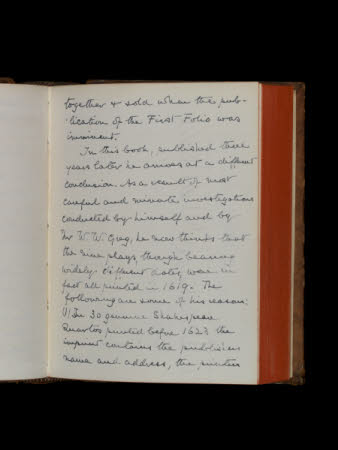 together & sold when the pub-
-lication of the First Folio was
imminent.
In this book, published three
years later he arrives at a different
conclusion. As a result of most
careful and minute investigations
conducted by himself and by
Dr W. W. Greg, he now thinks that
the nine plays, though bearing
widely different dates, were in
fact all printed in 1619. The
following are some of his reasons:
(1) In 30 genuine Shakespeare
Quartos printed before 1623 the
imprint contains the publishers
name and address, the printers